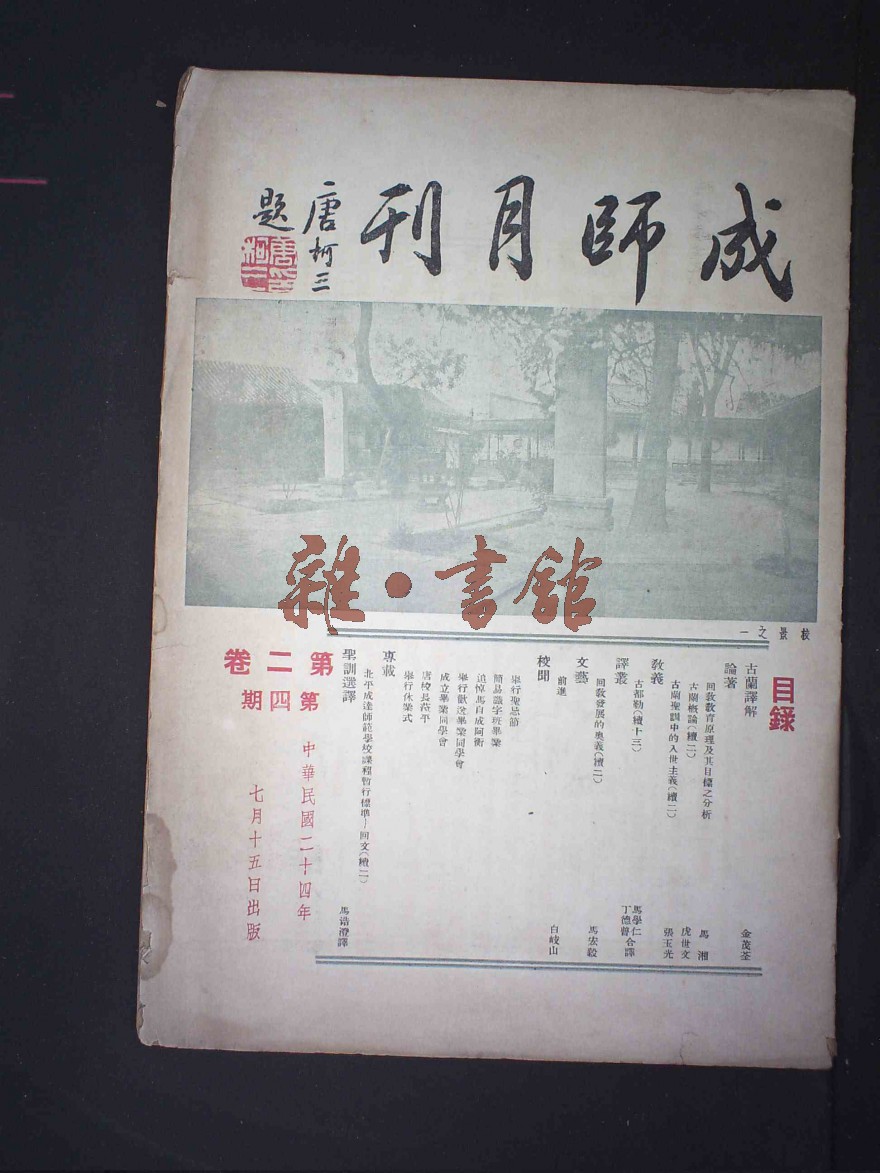 成師月刊
唐柯三
題
唐柯三印
雜·書館
校景之一
目錄
古蘭譯解 金茂荃
論著
回教教育原理及其目標之分析 馬湘
古蘭概論(續二) 虎世文
古蘭聖訓中的入世主義(續二) 張玉光
教義
古都勒(續十三) 馬學仁 丁德普合譯
譯叢
回教發展的奧義(續二) 馬宏毅
文藝
前進 白岐山
校聞
舉行聖忌節
簡易識字班畢業
追悼馬自成阿衡
舉行歡送畢業同學會
成立畢業同學會
唐校長蒞平
舉行休業式
專載
北平成達師範學校課程暫行標準—回文(續二)
聖訓選譯 馬浩澄譯
第二卷
第四期
中華民國二十四年
七月十五日出版